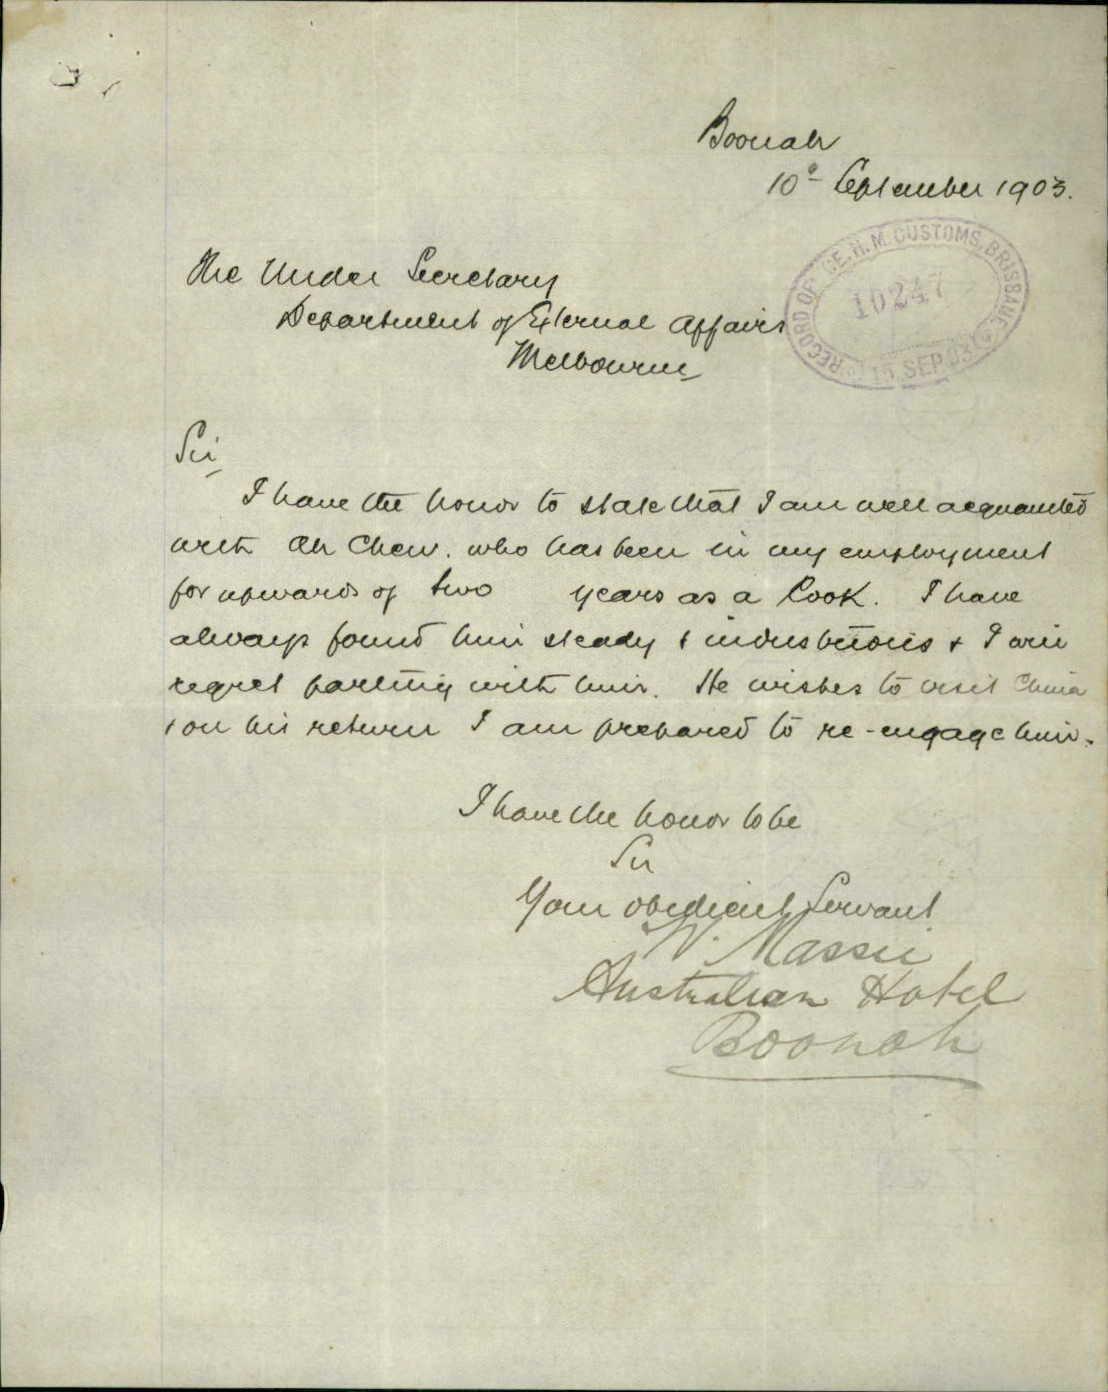 Boonah
10th September 1903.
The Under Secretary
Department of External Affairs
Melbourne
RECORD OFFICE, H.M. CUSTOMS, BRISBANE
10247
15 SEP 03
Sir
I have the honor to state that I am well acquainted
with Ah Chew. who has been in my employment
for upwards of two years as a Cook. I have
always found him steady & industrious & I am
regret parting with him. He wishes to visit China
& on his return I am prepared to re-engage him.
I have the honor to be
Sir
Your obedient Servant
W. Massie
Australian Hotel
Boonah